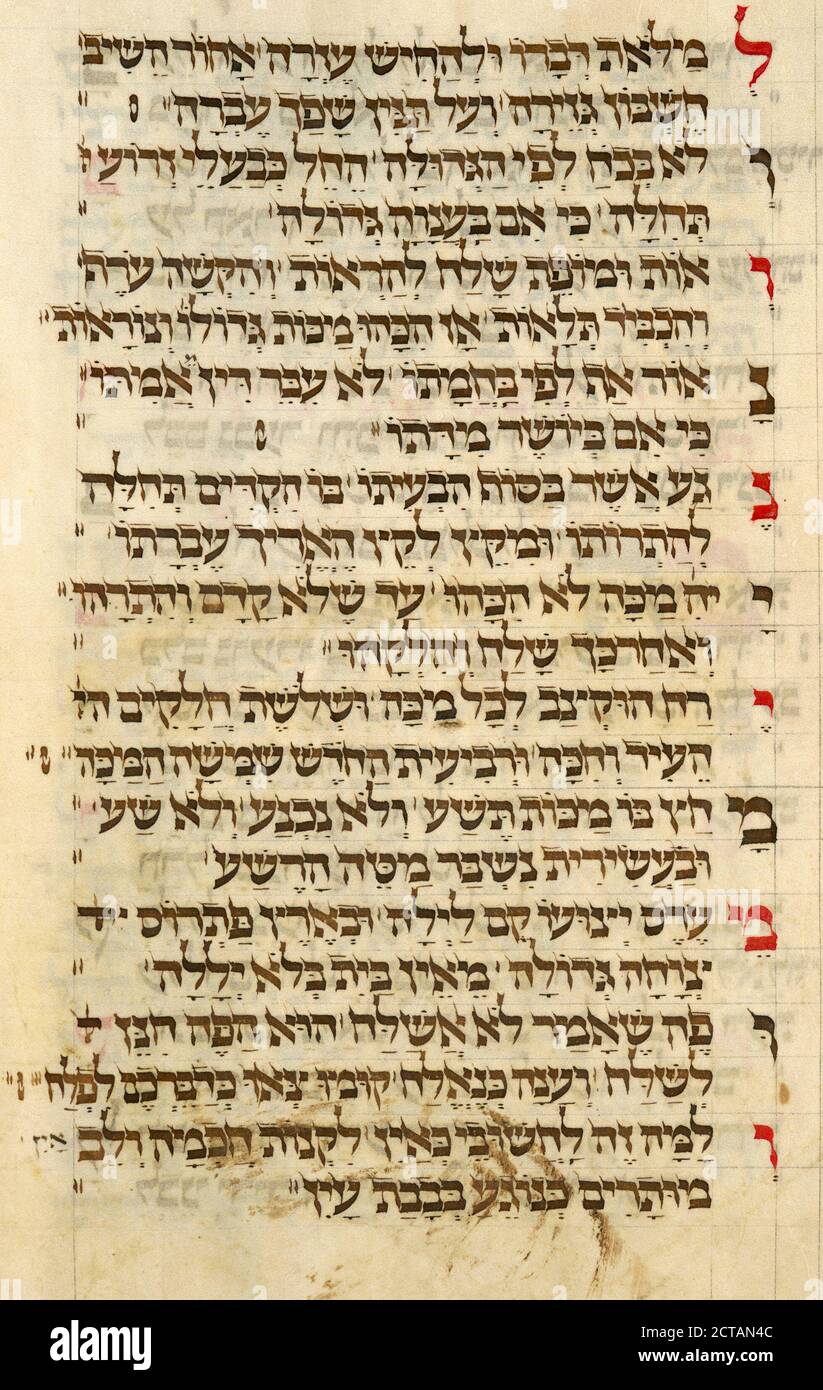 ל מִלֹּאת דְּבָרוֹ וּלְהָחִישׁ עֶזְרָה אָחוֹר הֵשִׁיב
חֶשְׁבּוֹן גְּזֵירָה וְעַל תַּנִּין שָׁפַךְ עֶבְרָה
לֹא כְּכֹחַ לְפִי הַגְּדוּלָּה הֵחֵל כְּבַעֲלֵי זְרוֹעַ
תְּחִלָּה כִּי אִם בַּעֲנָוָה גְּדוֹלָה
ו אוֹת וּמוֹפֵת שָׁלַח לְהַרְאוֹת וְהִקְשָׁה עֹרֶף
וְהִכְבִּיד תְּלָאוֹת אָז הִכָּהוּ מַכּוֹת גְּדוֹלוֹת וְנוֹרָאוֹת
לְפִי בְּחֶמְתוֹ לֹא עבר דִּין אֲמִתּוֹ
כִּי אִם בְּיוֹשֶׁר מִדָּתוֹ
נ גַע אֲשֶׁר בְּסוֹת הִבְעִיתוֹ בּוֹ הִקְדִּים תְּחִלָּה
לְהַתְרוֹתוֹ וּמִקֵּץ לְקֵץ הֶאֱרִיךְ עֶבְרָתוֹ
מַכָּה לֹא הִכָּהוּ עַד שֶׁלֹּא קָדַם וְהִתְרָהוּ
וְאַחַר כָּךְ שָׁלַח וְהִלְקָהוּ
י רַח הוּקְצַב לְכָל מַכָּה וּשְׁלֹשֶׁת חֲלָקִים הָיָ
הֵעִיד וְחִכָּה וּרְבִיעִית הַחֹדֶשׁ שִׁמְּשָׁה הַמַּכָּה
מ חַץ בּוֹ מַכּוֹת תֵּשַׁע וְלֹא נִכְנַע וְלֹא שָׁע
וּבָעֲשִׂירִית נִשְׁבַּר מַטֵּה הָרֶשַׁע
עֶרֶס יְצוּעוֹ קָם לַיְלָה וּבְאֶרֶץ פַּתְרוֹס
צְוָחָה גְדוֹלָה מֵאֵין בַּיִת בְּלֹא יְלָלָה
פֶּה שֶׁאָמַר לֹא אֲשַׁלַּח הוּא הַפֶּה
לְשַׁלַּח וְעָנָה כְּנֶאֱלַח קוּמוּ צְּאוּ כְּדַבֶּרְכֶם לִפְלֹחַ
ו לָמָּה זֶה לַחְשׁוּבֵי כְּאַיִן לִקְנוֹת חָכְמָה וְלֵב אין
מוּתָּרִים כְּנוֹגֵעַ בְּבָבַת עַיִן
alamy
Image ID: 2CTAN4C
www.alamy.com